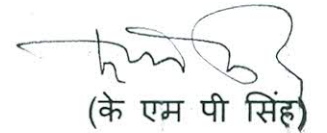 (के एम पी सिंह)